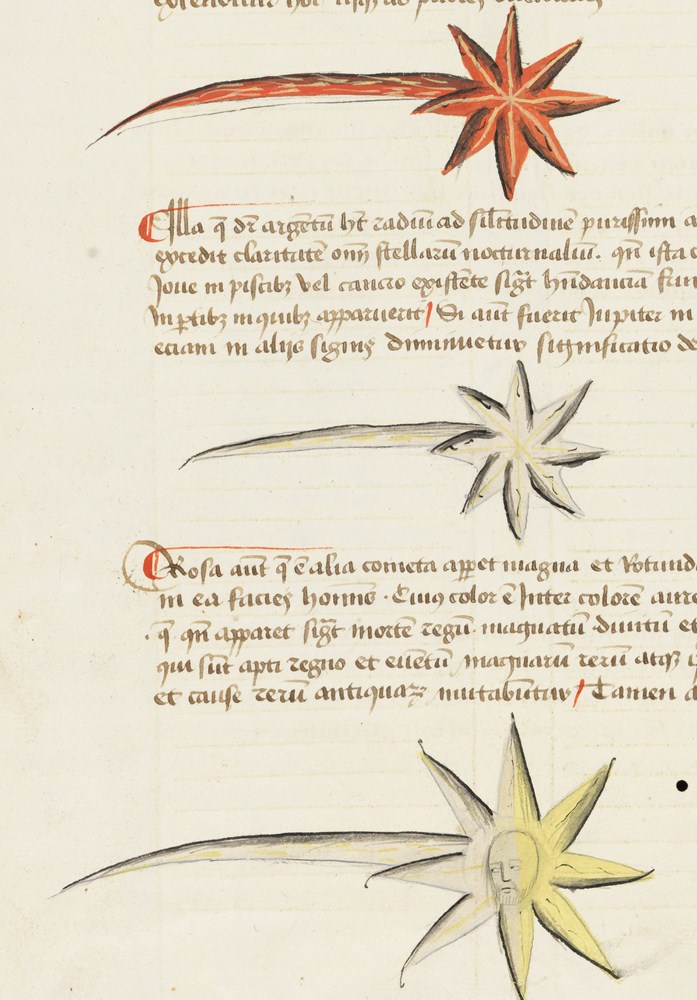 Illa q̄ dr̄ argētū ht̄ radiū ad sil̄itudinē purissimi a
excedit claritatē oīm stellarū nocturnaliū. qn̄ ista
Joue in piscibꝫ vel cancro existēte sigt̄ hn̄danciā fru
in ꝑtibꝫ in quibꝫ apparuerit / Si aūt fuerit Jupiter in
eciam in alijs signis diminuetur significatio de
Rosa aūt q̄ ē alia cometa apꝑet magna et Rotund
in ea facies hoīnis. Eiuꝰ color ē Inter colorē aure
q̄ qn̄ apparet sigt̄ mortē regū magnatū diuitū et
qui sūt apti regno et euētū magnarū rerū atqꝫ
et cause rerū antiquaꝝ mutabūtur / Tamen a